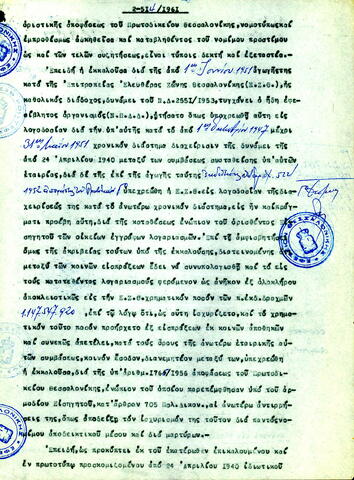 2-514/1961
οριστικής αποφάσεως του Πρωτοδικείου Θεσσαλονίκης, νομοτύπως και
εμπροθέσμως ασκηθείσα και καταβληθέντος του νομίμου προστίμου
ως και των τελών συζητήσεως, είναι τύποις δεκτή και εξεταστέα.-
Επειδή η εκκαλούσα διά της από 1ης Ιουνίου 1951 αγωγής της
κατά της Επιτροπείας Ελευθέρας Ζώνης Θεσσαλονίκης (Ε.Ζ.Θ.), ής
καθολικός διάδοχος, δυνάμει του Ν.Δ. 2551/1953, τυγχάνει ο ήδη εφε-
σίβλητος οργανισμός (Ν.Π.Δ.Δ.), ητήσατο όπως υποχρεωθή αύτη εις
λογοδοσίαν διά την υπ' αυτής κατά το από 1ης Οκτωβρίου 1947 μέχρι
31ης 1951 χρονικόν διάστημα διαχείρισιν της δυνάμει της
από 24 Απριλίου 1940 μεταξύ των συμβάσεως συσταθείσης υπ' αυτών
εταιρίας, διά δε της επί της αγωγής ταύτης υπ' αριθ. 522/
1952 υπεχρεώθη η Ε.Ζ.Θ. εις λογοδοσίαν της δια-
χειρίσεώς της κατά το ανωτέρω χρονικόν διάστημα, εις ην και πρά-
γματι προέβη αύτη, διά της καταθέσεως ενώπιον του ορισθέντος Ει-
σηγητού των οικείων εγγράφων λογαριασμών. Επί τω αμφισβητή-
σεως της ακριβείας τούτων υπό της εκκαλούσης, διατεινομένης ότι
μεταξύ των κοινών εισπράξεων έδει να συνυπολογισθή και το εις
τους κατατεθέντας λογαριασμούς φερόμενον ως ανήκον εξ ολοκλήρου
αποκλειστικώς εις την Ε.Ζ.Θ. χρηματικόν ποσόν των π.εκδ. δραχμών
1.147.547.920 επί τω λόγω ότι, ως αύτη ισχυρίζετο, και το χρημα-
τικόν τούτο ποσόν προήρχετο εξ εισπράξεων εκ κοινών αποθηκών
και συνεπώς απετέλει, κατά τους όρους της ανωτέρω εταιρικής αυ-
τών συμβάσεως, κοινόν έσοδον, διανεμητέον μεταξύ των, υπεχρεώθη
η εκκαλούσα, διά της υπ' αριθμ. 1766/1956 αποφάσεως του Πρωτοδι-
κείου Θεσσαλονίκης, ενώπιον του οποίου παρεπέμφθησαν υπό του αρ-
μοδίου Εισηγητού, κατ' άρθρον 705 Πολ. Δικον., αι ανωτέρω αντιρρή-
σεις της, όπως αποδείξη τον ισχυρισμόν της τούτον διά παντός νο-
μίμου αποδεικτικού μέσου και διά μαρτύρων.-
Επειδή, ως προκύπτει εκ του εκατέρωθεν επικαλουμένου και
εν πρωτοτύπω προσκομιζομένου από 24 Απριλίου 1940 ιδιωτικού